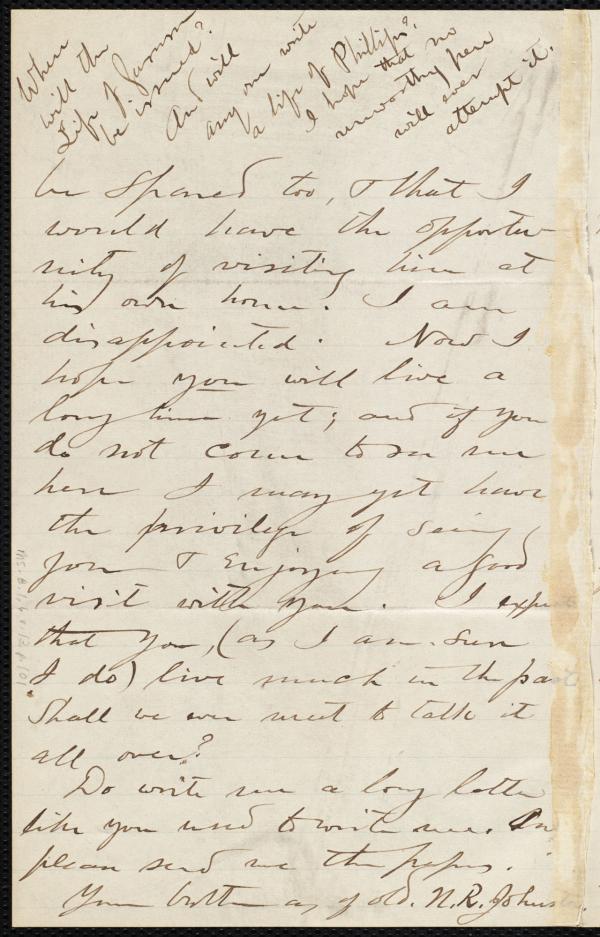 When
will the
Life of Garrison
be issued?
And will
any one write
a life of Phillips?
I hope that no
unworthy pen
will ever
attempt it.
be spared too, & that I
would have the opportu-
nity of visiting him at
his own home. I am
disappointed. Now I
hope you will live a
long time yet; and if you
do not come to see me
here I may yet have
the privilege of seeing
you & enjoying a good
visit with you. I expect
that you, (as I am sure
I do) live much in the past
Shall we ever meet to talk it
all over?
Do write me a long letter
like you used to write me. Or
please send me the papers.
Your brother as of old. N.R. Johnston.